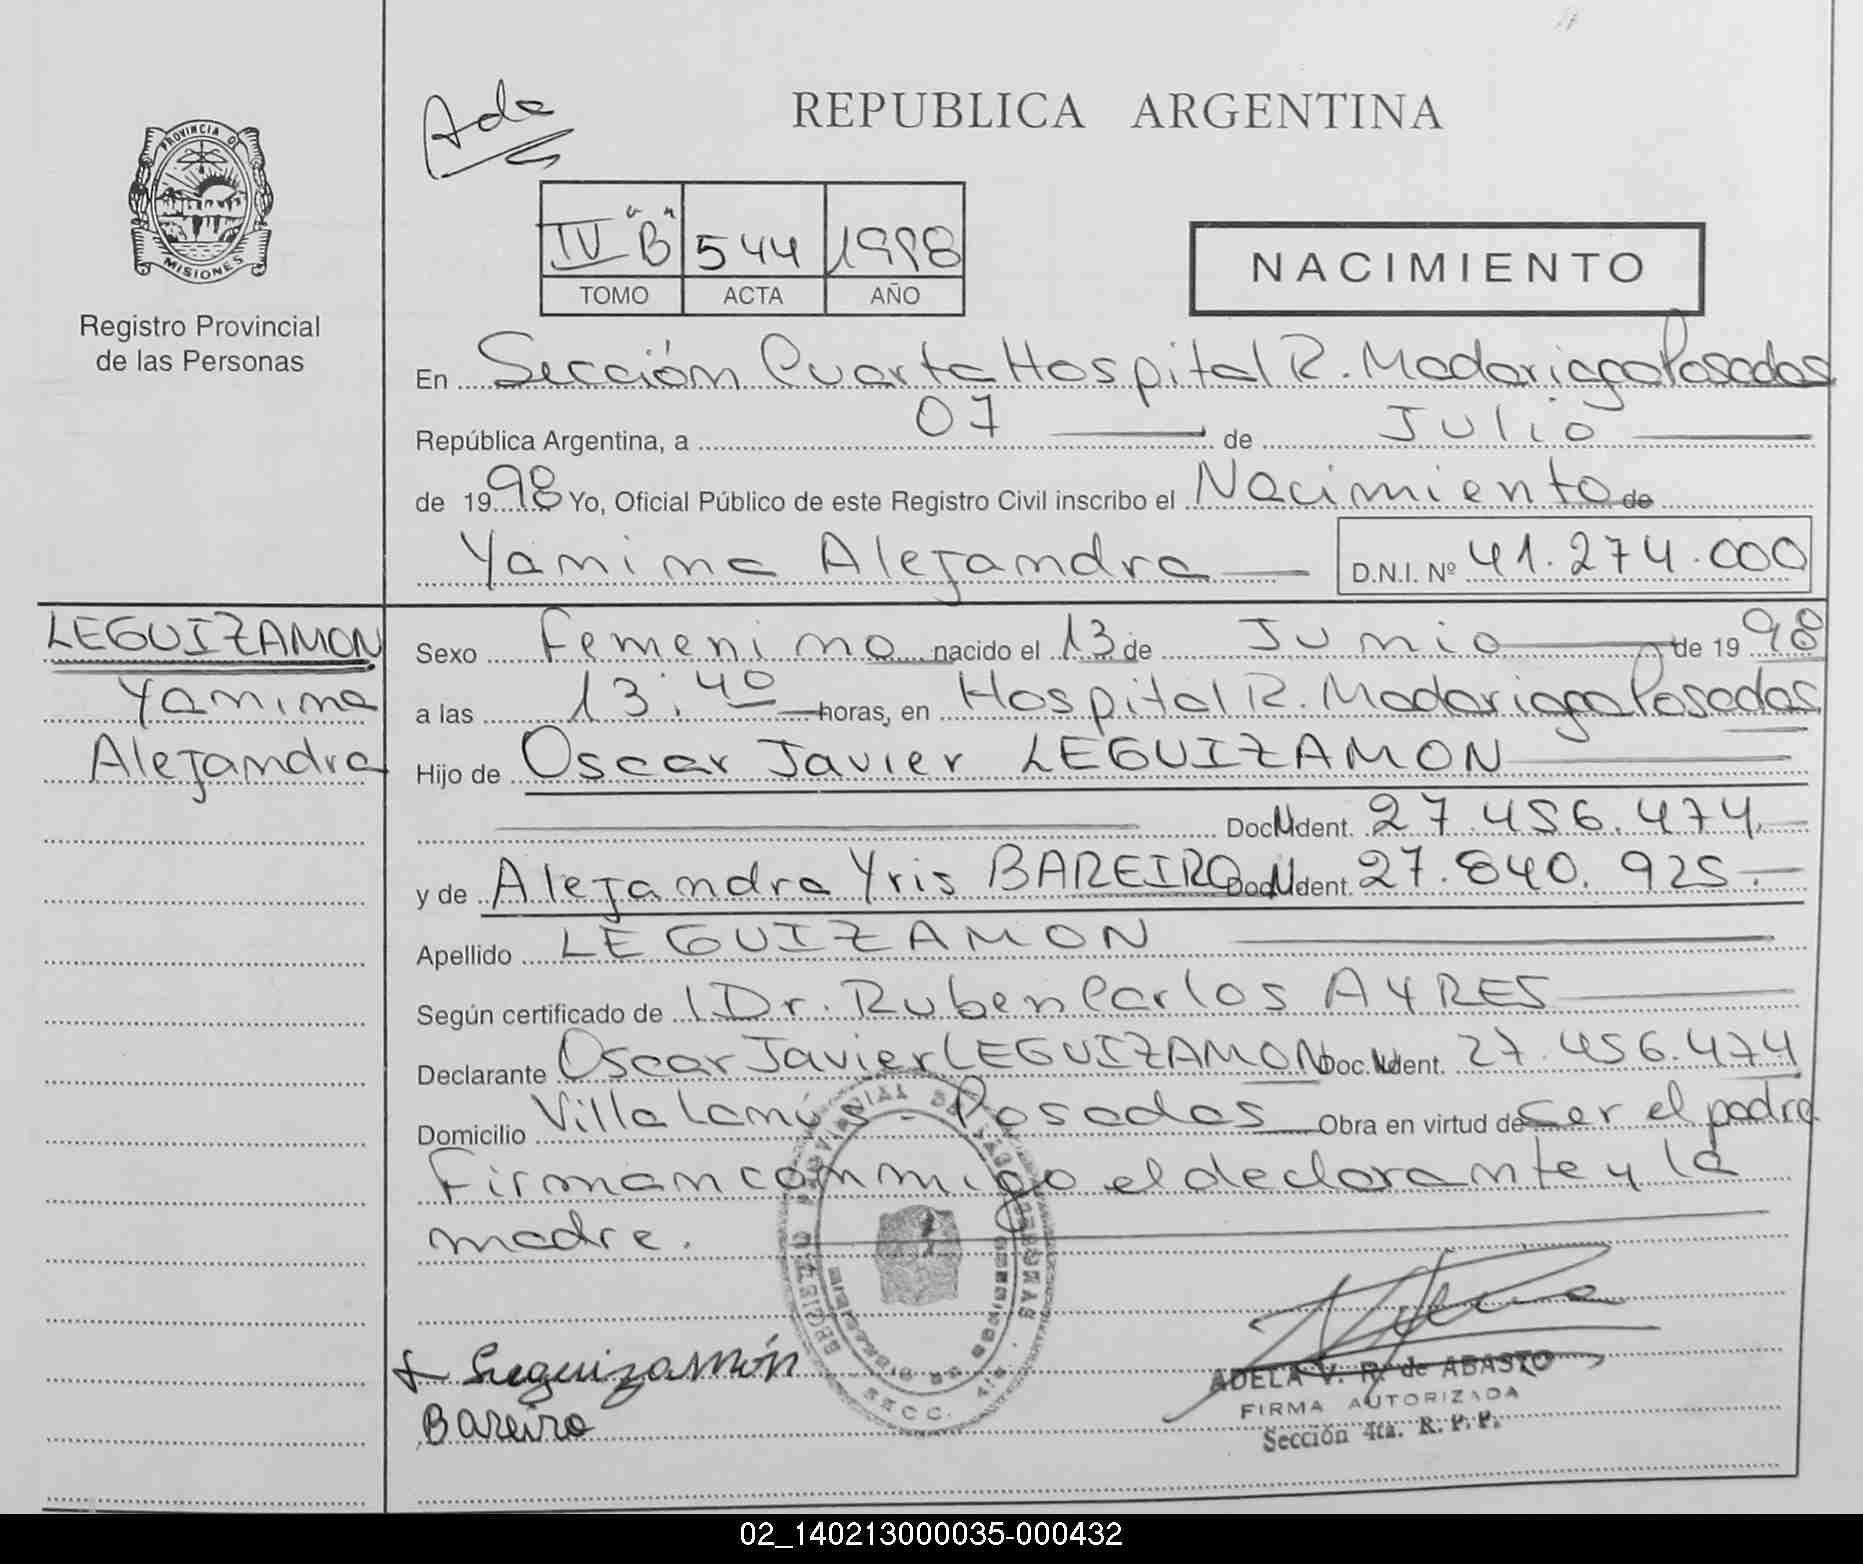 Ade
REPUBLICA ARGENTINA
PROVINCIA DE
MISIONES
Registro Provincial
de las Personas
IV "B" 544 1998
TOMO ACTA AÑO
NACIMIENTO
En Sección Cuarta Hospital R. Madariaga Posadas
República Argentina, a 07 de Julio
de 1998 Yo, Oficial Público de este Registro Civil inscribo el Nacimiento de
Yamina Alejandra D.N.I. Nº 41.274.000
LEGUIZAMON
Yamina
Alejandra
Sexo Femenino nacido el 13 de Junio de 1998
a las 13:40 horas, en Hospital R. Madariaga Posadas
Hijo de Oscar Javier LEGUIZAMON
Doc. Ident. 27.456.474.
y de Alejandra Yris BAREIRO Doc. Ident. 27.840.925.
Apellido LEGUIZAMON
Según certificado de Dr. Ruben Carlos AYRES
Declarante Oscar Javier LEGUIZAMON Doc. Ident. 27.456.474
Domicilio Villa Lanús - Posadas Obra en virtud de Ser el padre
Firman conmigo el declarante y la
madre.
Leguizamón
Bareiro
SECC. 4ta.
ADELA V. R. de ABASTO
FIRMA AUTORIZADA
Sección 4ta. R. P. P.
02_140213000035-000432